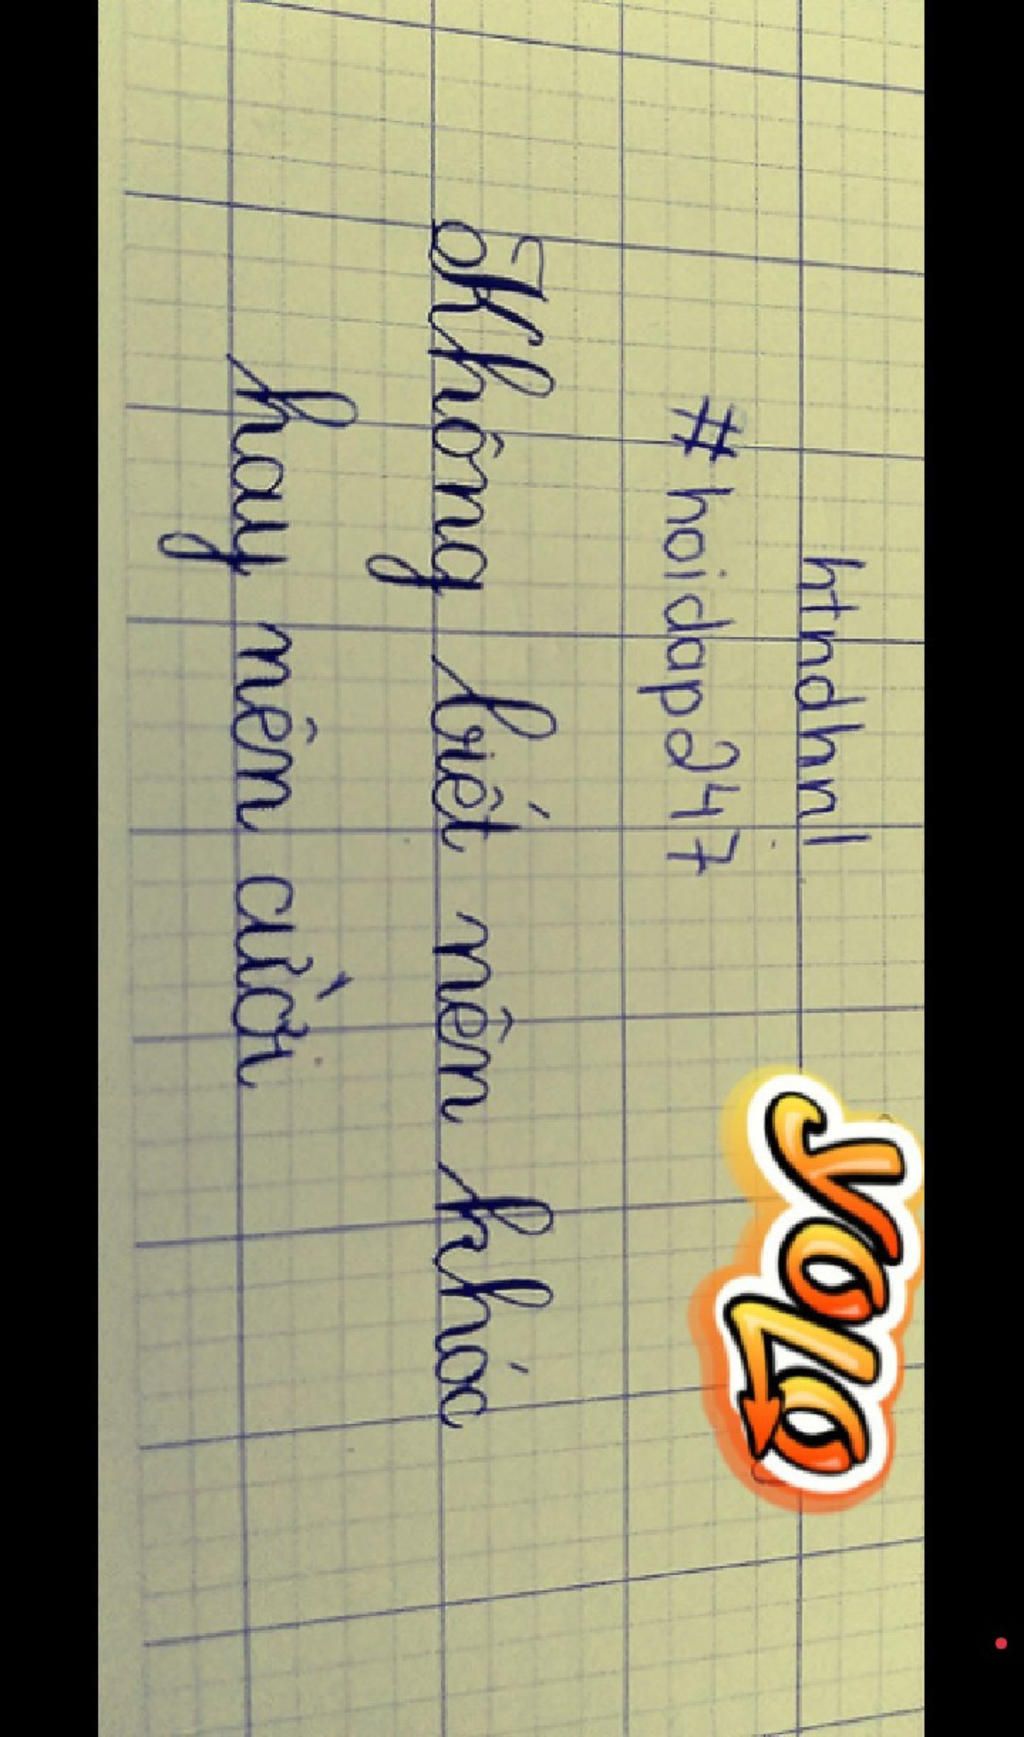 htndhn1
#hoidap247
Không biết nên khóc
hay nên cười
YOLO